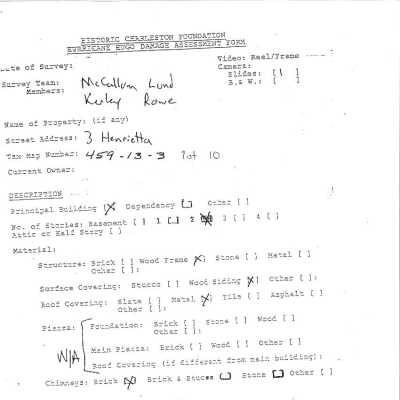 HISTORIC CHARLESTON FOUNDATION
HURRICANE HUGO DAMAGE ASSESSMENT FORM
Video: Reel/Frame
Date of Survey:
Camera:
Slides: [1 ]
B.& W.: [ ]
Survey Team: McCallum Lund
Members: Rowe
Name of Property: (if any)
Street Address: 3 Henrietta
Tax Map Number: 459-13-3 10
Current Owner:
DESCRIPTION
Principal Building [X] Dependency [ ] Other [ ]
No. of Stories: Basement [ ] 1 [ ] 2 [X] 3 [ ] 4 [ ]
Attic or Half Story [ ]
Material:
Structure: Brick [ ] Wood Frame [X] Stone [ ] Metal [ ]
Other [ ]:
Surface Covering: Stucco [ ] Wood Siding [X] Other [ ]:
Roof Covering: Slate [ ] Metal [X] Tile [ ] Asphalt [ ]
Other [ ]:
Piazza: Foundation: Brick [ ] Stone [ ] Wood [ ]
Other [ ]:
N/A
Main Piazza: Brick [ ] Wood [ ] Other [ ]:
Roof Covering (if different from main building):
Chimneys: Brick [X] Brick & Stucco [ ] Stone [ ] Other [ ]